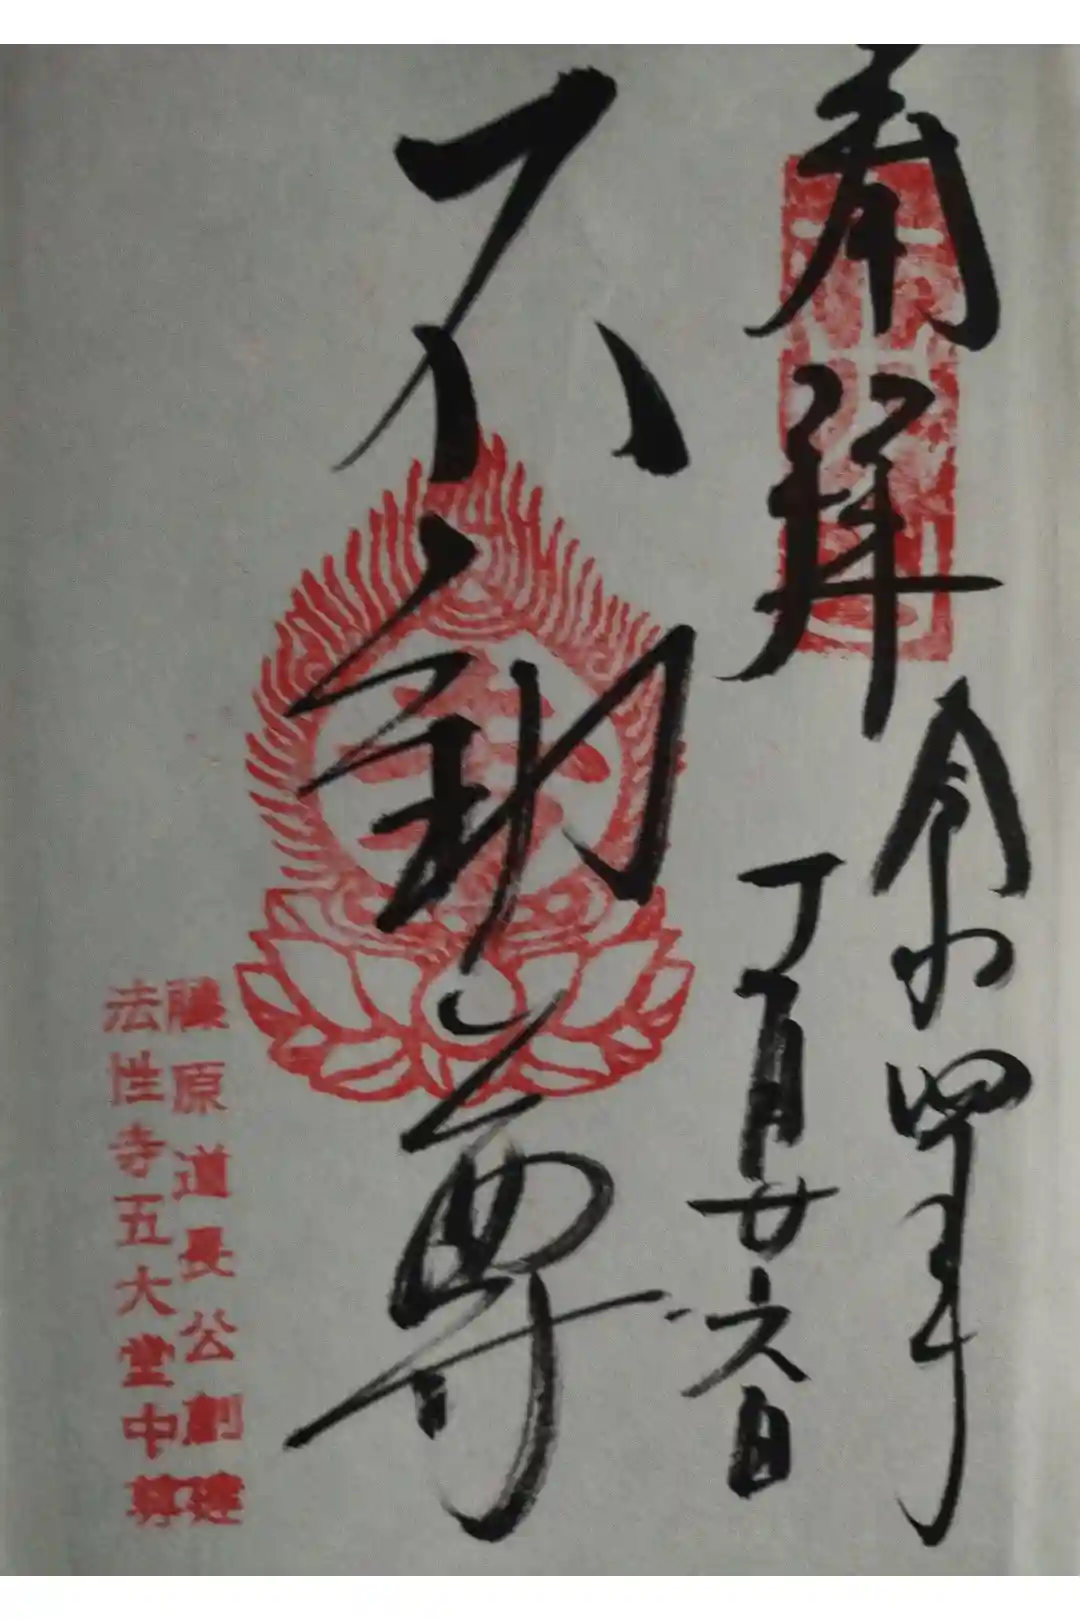 奉拝
令和四年
月廿六日
不動尊
藤原道長公創建
法性寺五大堂中尊